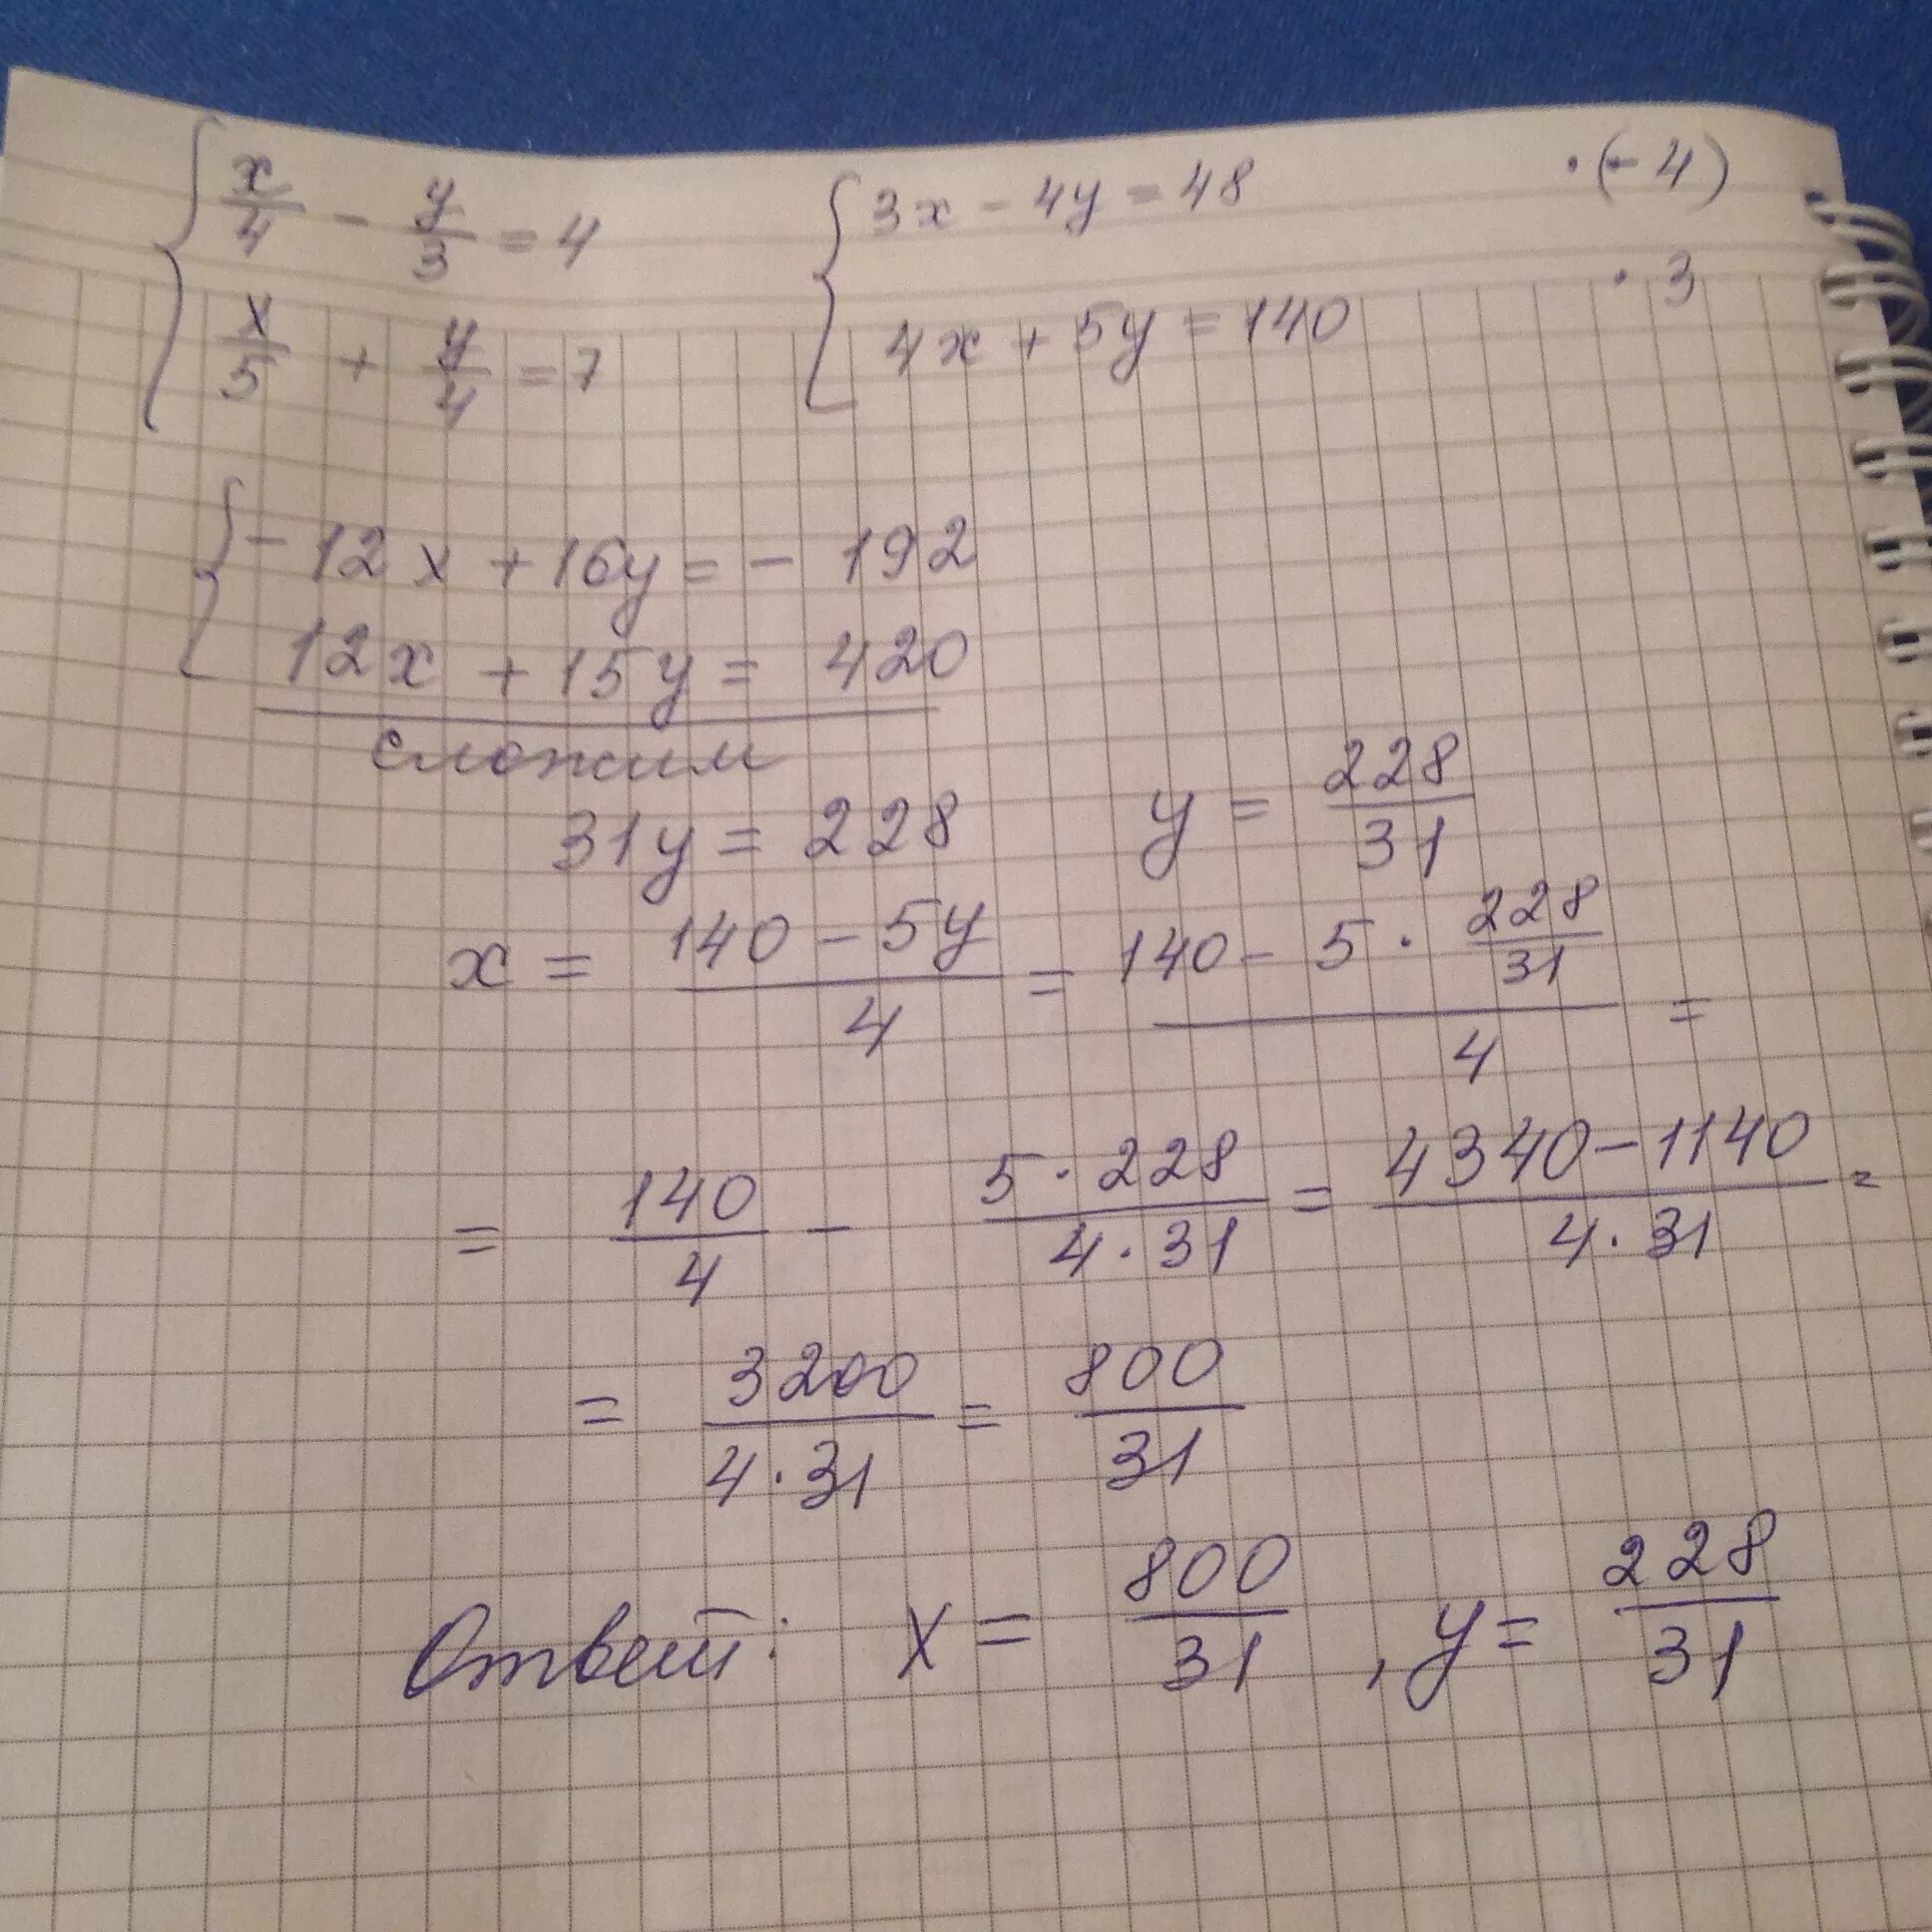 { x/4 - y/3 = 4   { 3x - 4y = 48   · (-4)
x/5 + y/4 = 7   4x + 5y = 140   · 3
{ - 12x + 16y = - 192
12x + 15y = 420
сложим
31y = 228   y = 228/31
x = (140 - 5y)/4 = (140 - 5 · 228/31)/4 =
= 140/4 - (5 · 228)/(4 · 31) = (4340 - 1140)/(4 · 31) =
= 3200/(4 · 31) = 800/31
Ответ: x = 800/31 , y = 228/31